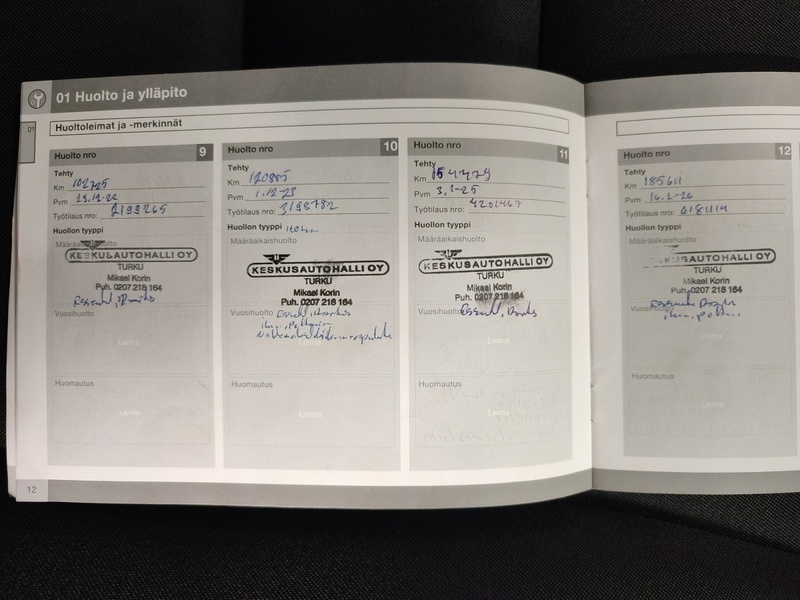 01 Huolto ja ylläpito
01
Huoltoleimat ja -merkinnät
Huolto nro 9
Tehty
Km 102725
Pvm
Työtilaus nro: 2199265
Huollon tyyppi
Määräaikaishuolto
KESKUSAUTOHALLI OY
TURKU
Mikael Korin
Puh. 0207 218 164
Vuosihuolto
Leima
Huomautus
Leima
Huolto nro 10
Tehty
Km 120885
Pvm 1.12-23
Työtilaus nro: 3198782
Huollon tyyppi
Määräaikaishuolto
KESKUSAUTOHALLI OY
TURKU
Mikael Korin
Puh. 0207 218 164
Vuosihuolto
Huomautus
Leima
Huolto nro 11
Tehty
Km
Pvm 3.1-25
Työtilaus nro:
Huollon tyyppi
Määräaikaishuolto
KESKUSAUTOHALLI OY
TURKU
Mikael Korin
Puh. 0207 218 164
Vuosihuolto
Leima
Huomautus
Leima
Huolto nro 12
Tehty
Km
Pvm 16.1-26
Työtilaus nro:
Huollon tyyppi
Määräaikaishuolto
KESKUSAUTOHALLI OY
TURKU
Mikael Korin
Puh. 0207 218 164
Vuosihuolto
Leima
Huomautus
Leima
12